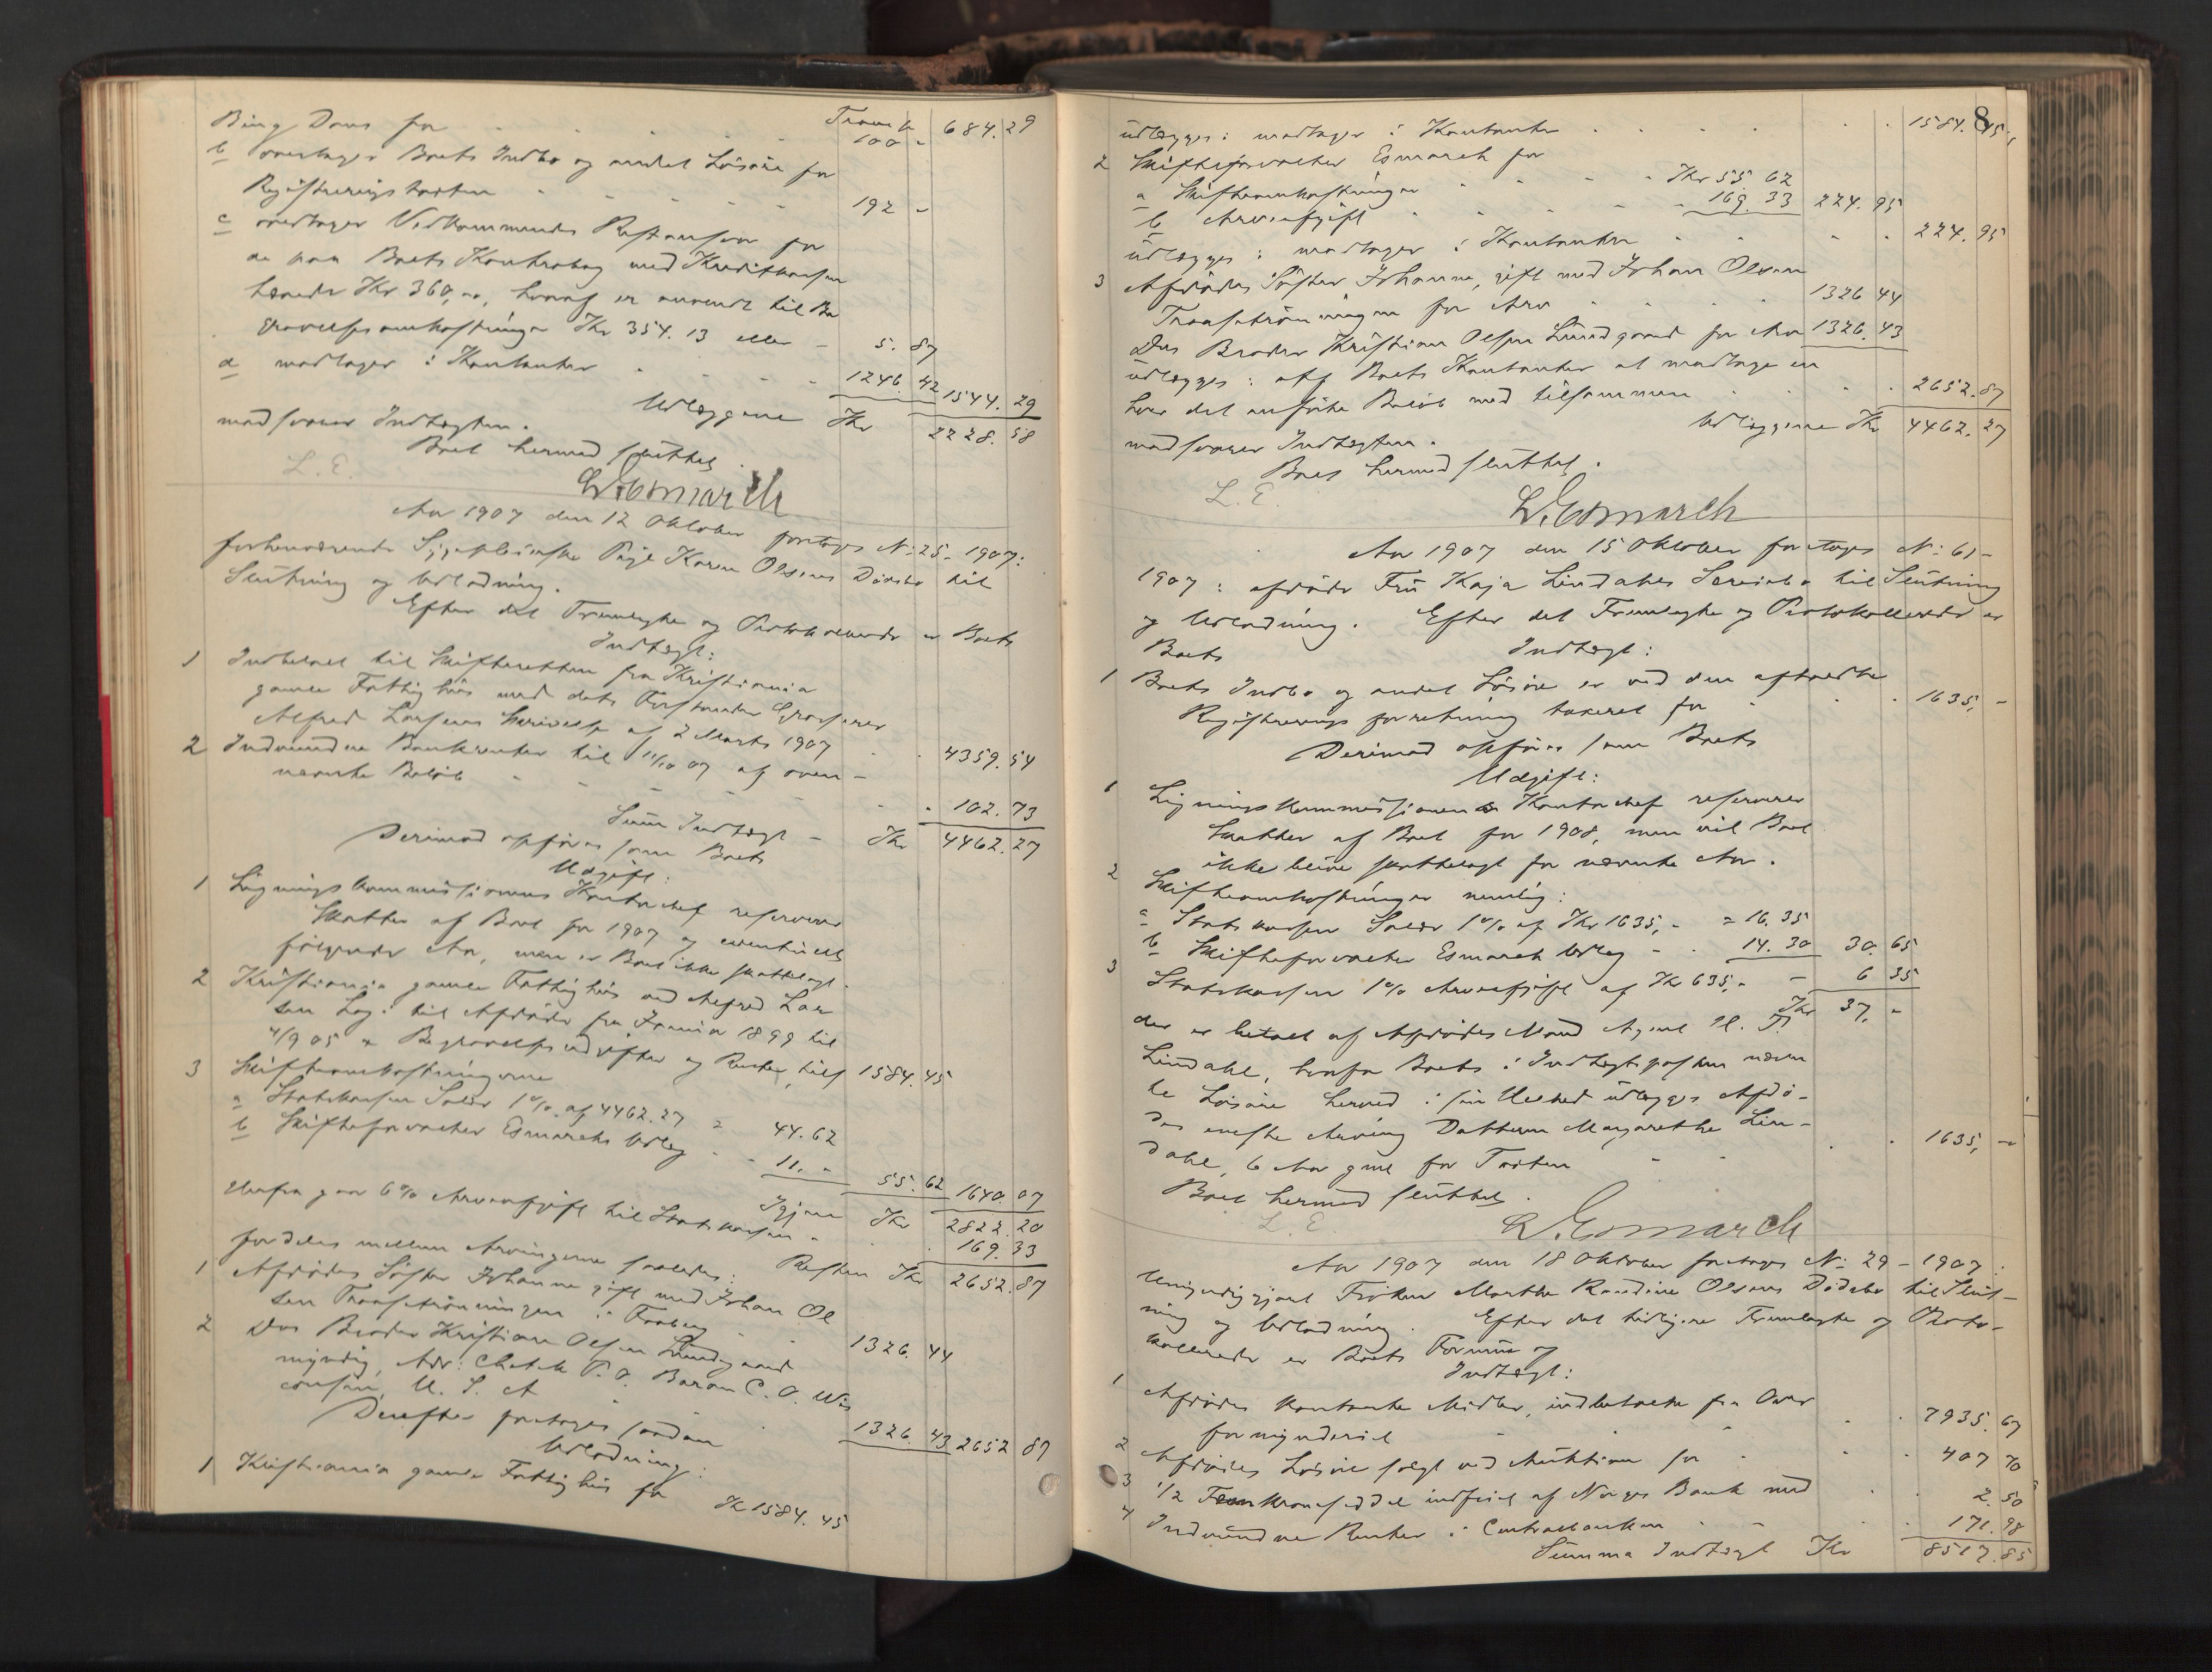 Transp. 684.29
Bing Dons for 100 -
b overtager Boets Indbo og andet Løsøre for
Registreringstaxten 192 -
c overtager Vedkommendes for
de paa Boets Kontrabog med Kreditkassen
hævede Kr 360,00, hvoraf er anvendt til Be
gravelsesomkostninger Kr 354.13 eller 5.87
d modtager i Kontanter 1246.42 1544.29
Udlæggene Kr 2228.58
modsvarer Indtægten.
Boet hermed sluttet.
L.E.
L. Esmarch
Aar 1907 den 12 Oktober foretoges No 25-1907:
forhenværende Sygepleierske Pige Karen Olsens Dødsbo til
Slutning og Udlodning.
Efter det Fremlagte og Protokollerede er Boets
Indtægt:
1 Indbetalt til Skifteretten fra Kristiania
gamle Fattighus med dets Forstander Grosserer
Alfred Larsens Skrivelse af 2 Marts 1907 4359.54
2 Indvundne Bankrenter til 11/10 07 af oven-
nævnte Beløb 102.73
Sum Indtægt Kr 4462.27
Derimod opføres som Boets
Udgift:
1 Ligningskommissionens Kontorchef reserverer
Skatter af Boet for 1907 og eventuelt
følgende Aar, men er Boet ikke skattelagt.
2 Kristiania gamle Fattighus ved Alfred Lar
sen Logi til Afdøde fra Januar 1899 til
4/9 05 + Begravelsesudgifter og Renter, tils 1584.45
3 Skifteomkostningerne
a Statskassen Salær 1% af 4462.27 = 44.62
b Skifteforvalter Esmarchs Udlæg 11.- 55.62 1640.07
Igjen Kr 2822.20
Herfra gaar 6% Arveafgift til Statskassen 169.33
Resten Kr 2652.87
fordeles mellem Arvingerne saaledes:
1 Afdødes Søster Johanne gift med Johan Ol
sen Traasetrømningen i Faaberg 1326.44
2 Do Broder Kristian Olsen Lundgaard
myndig, Adr: Chetek P.O. Baron C.O. Wis
consin, U.S.A 1326.43 2652.87
Derefter foretoges saadan
Udlodning:
1 Kristiania gamle Fattighus for Kr 1584.45
8
udlægges: modtager i Kontanter 1584.45
2 Skifteforvalter Esmarch for
a Skifteomkostninger Kr 55.62
b Arveafgift 169.33 224.95
udlægges: modtager i Kontanter 224.95
3 Afdødes Søster Johanne, gift med Johan Olsen
Traasetrømningen for Arv 1326.44
Dos Broder Kristian Olsen Lundgaard for Arv 1326.43
udlægges: af Boets Kontanter at modtage en
hver det anførte Beløb med tilsammen 2652.87
Udlæggene Kr 4462.27
modsvarer Indtægten.
Boet hermed sluttet.
L.E.
L. Esmarch
Aar 1907 den 15 Oktober foretoges No 61-
1907: afdøde Fru Kaja Lindahls Særeiebo til Slutning
og Udlodning. Efter det Fremlagte og Protokollerede er
Boets Indtægt:
1 Boets Indbo og andet Løsøre er ved den afholdte
Registreringsforretning taxeret for 1635,-
Derimod opføres som Boets
Udgift:
1 Ligningskommissionens Kontorchef reserverer
Skatter af Boet for 1908, men vil Boet
ikke blive skattelagt for nævnte Aar.
2 Skifteomkostninger nemlig:
a Statskassen Salær 1% af Kr 1635,- = 16.35
b Skifteforvalter Esmarch Udlæg 14.30 30.65
3 Statskassen 1% Arveafgift af Kr 635,- 6.35
Kr 37,-
der er betalt af Afdødes Mand Agent H. T.
Lindahl, hvorfor Boets i Indtægtsposten nævn
te Løsøre herved i sin Helhed udlægges Afdø-
des eneste Arving Datteren Margarethe Lin-
dahl, 6 Aar gml for Taxten 1635,-
Boet hermed sluttet.
L.E.
L. Esmarch
Aar 1907 den 18 Oktober foretoges No 29-1907:
Umyndiggjort Frøken Marthe Randine Olsens Dødsbo til Slut-
ning og Udlodning. Efter det tidligere Fremlagte og Proto-
kollerede er Boets Formue og
Indtægt:
1 Afdødes kontante Midler, indbetalte fra Over
formynderiet 7935.67
2 Afdødes Løsøre solgt ved Auktion for 407.70
3 1/2 Femkroneseddel indfriet af Norges Bank med 2.50
4 Indvundne Renter i Centralbanken 171.98
Summa Indtægt Kr 8517.85